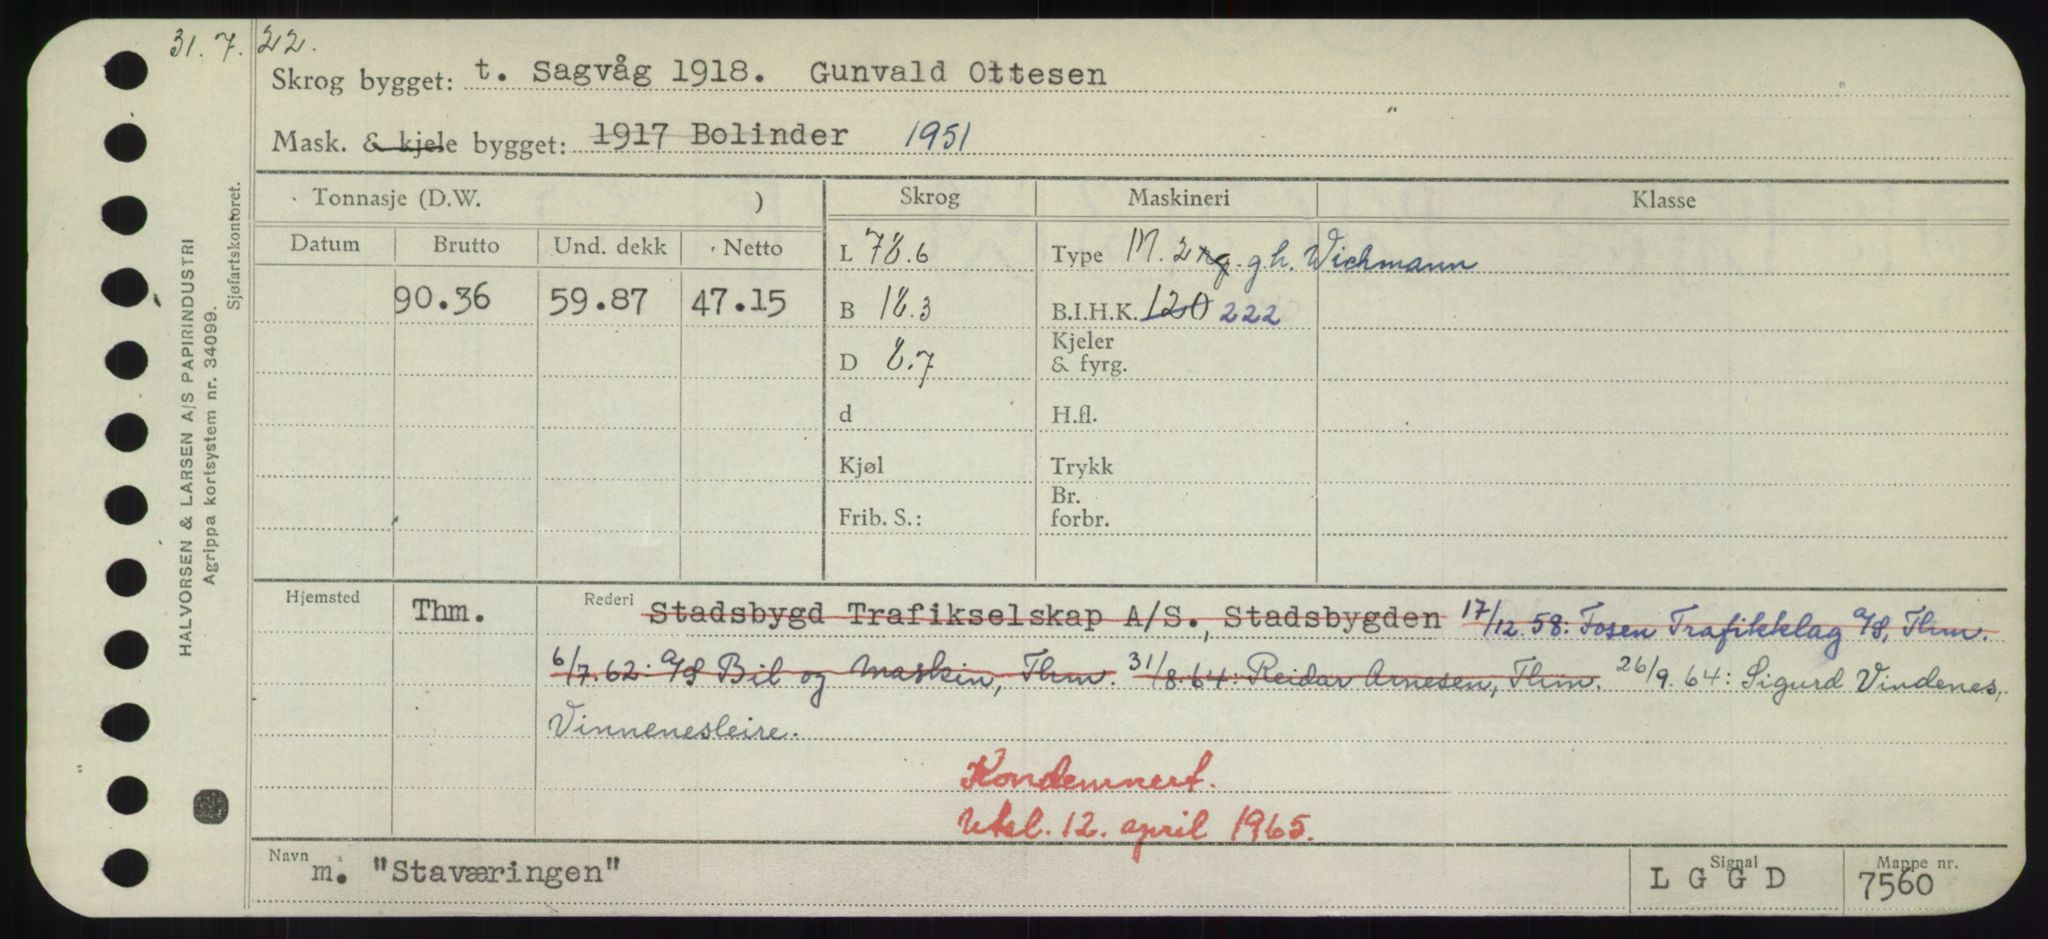 31.7.22.
Skrog bygget: t. Sagvåg 1918. Gunvald Ottesen
Mask. & kjele bygget: 1917 Bolinder 1951
Tonnasje (D.W. ) Skrog Maskineri Klasse
Datum Brutto Und. dekk Netto L 78.6 Type M. 2 g.h. Wichmann
90.36 59.87 47.15 B 18.3 B.I.H.K. 120 222
Kjeler
D 8.7 & fyrg.
d H.fl.
Kjøl Trykk
Br.
Frib. S.: forbr.
Hjemsted Thm. Rederi Stadsbygd Trafikselskap A/S., Stadsbygden 17/12.58: Fosen Trafikklag a/s, Thm.
6/7.62: a/s Bil og Maskin, Thm. 31/8.64: Reidar Arnesen, Thm. 26/9.64: Sigurd Vindenes,
Vinnenesleire.
Kondemnert.
Utsl. 12. april 1965.
Navn m. "Staværingen" Signal L G G D Mappe nr. 7560
HALVORSEN & LARSEN A/S PAPIRINDUSTRI
Agrippa kortsystem nr. 34099.
Sjøfartskontoret.